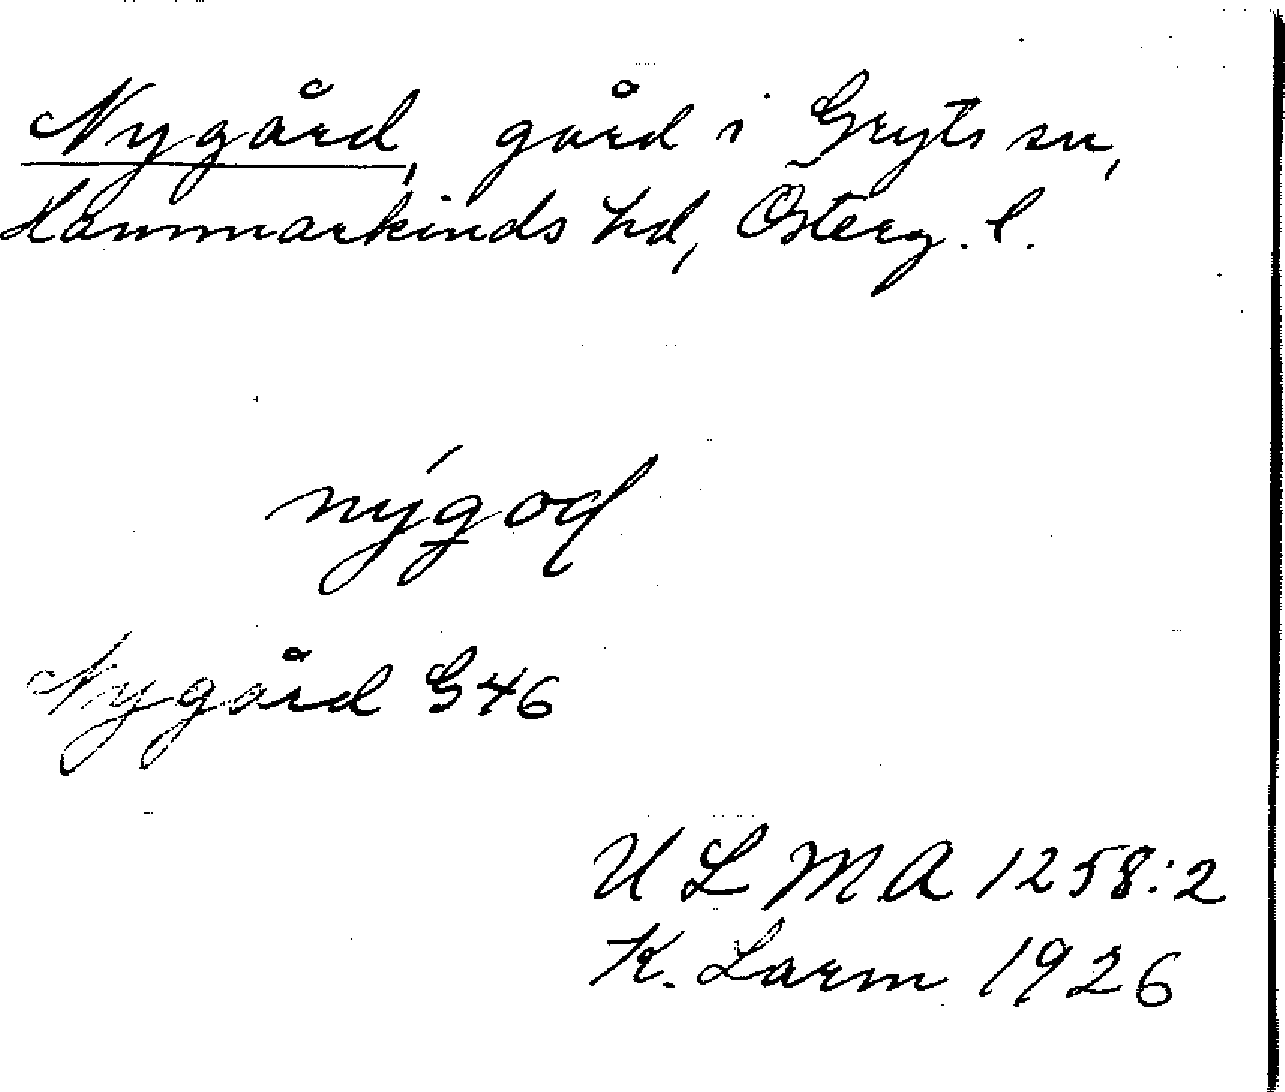 Nygård, gård i Gryts sn,
Hammarkinds hd, Österg. l.
nýgoḍ
Nygård G46
ULMA 1258:2
K. Larm 1926